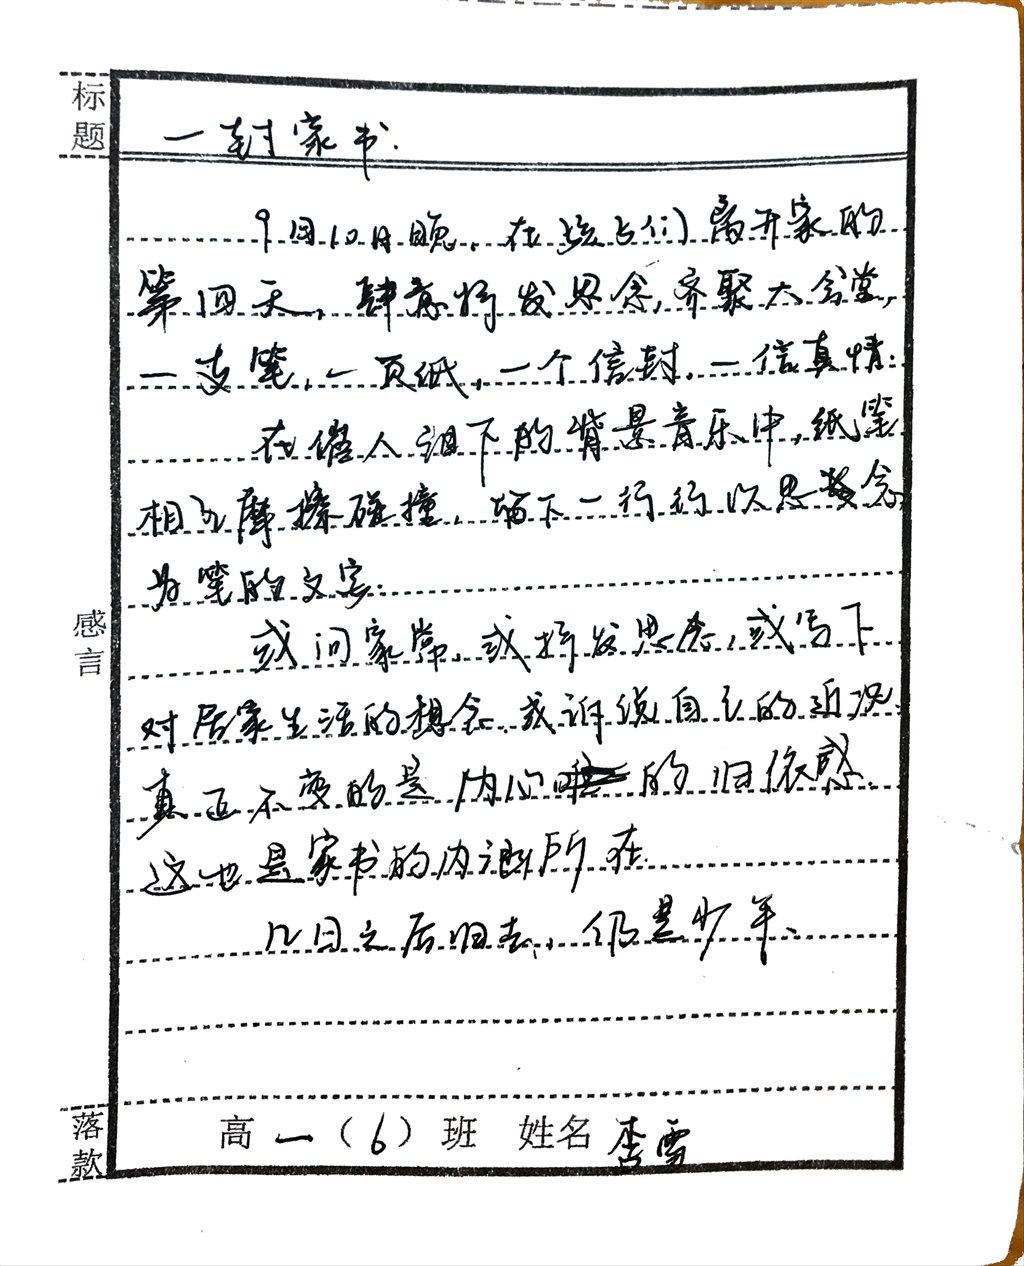 标题
一封家书.
9月10日晚，在孩子们离开家的
第四天，肆意抒发思念，齐聚大会堂，
一支笔，一页纸，一个信封，一信真情.
在催人泪下的背景音乐中，纸笔
相互摩擦碰撞，留下一行行以思念
为笔的文字.
感言
或问家常，或抒发思念，或写下
对居家生活的想念，或诉说自己的近况，
真正不变的是内心的归依感.
这也是家书的内涵所在.
几日之后归去，仍是少年、
落款
高一（6）班 姓名 李雪